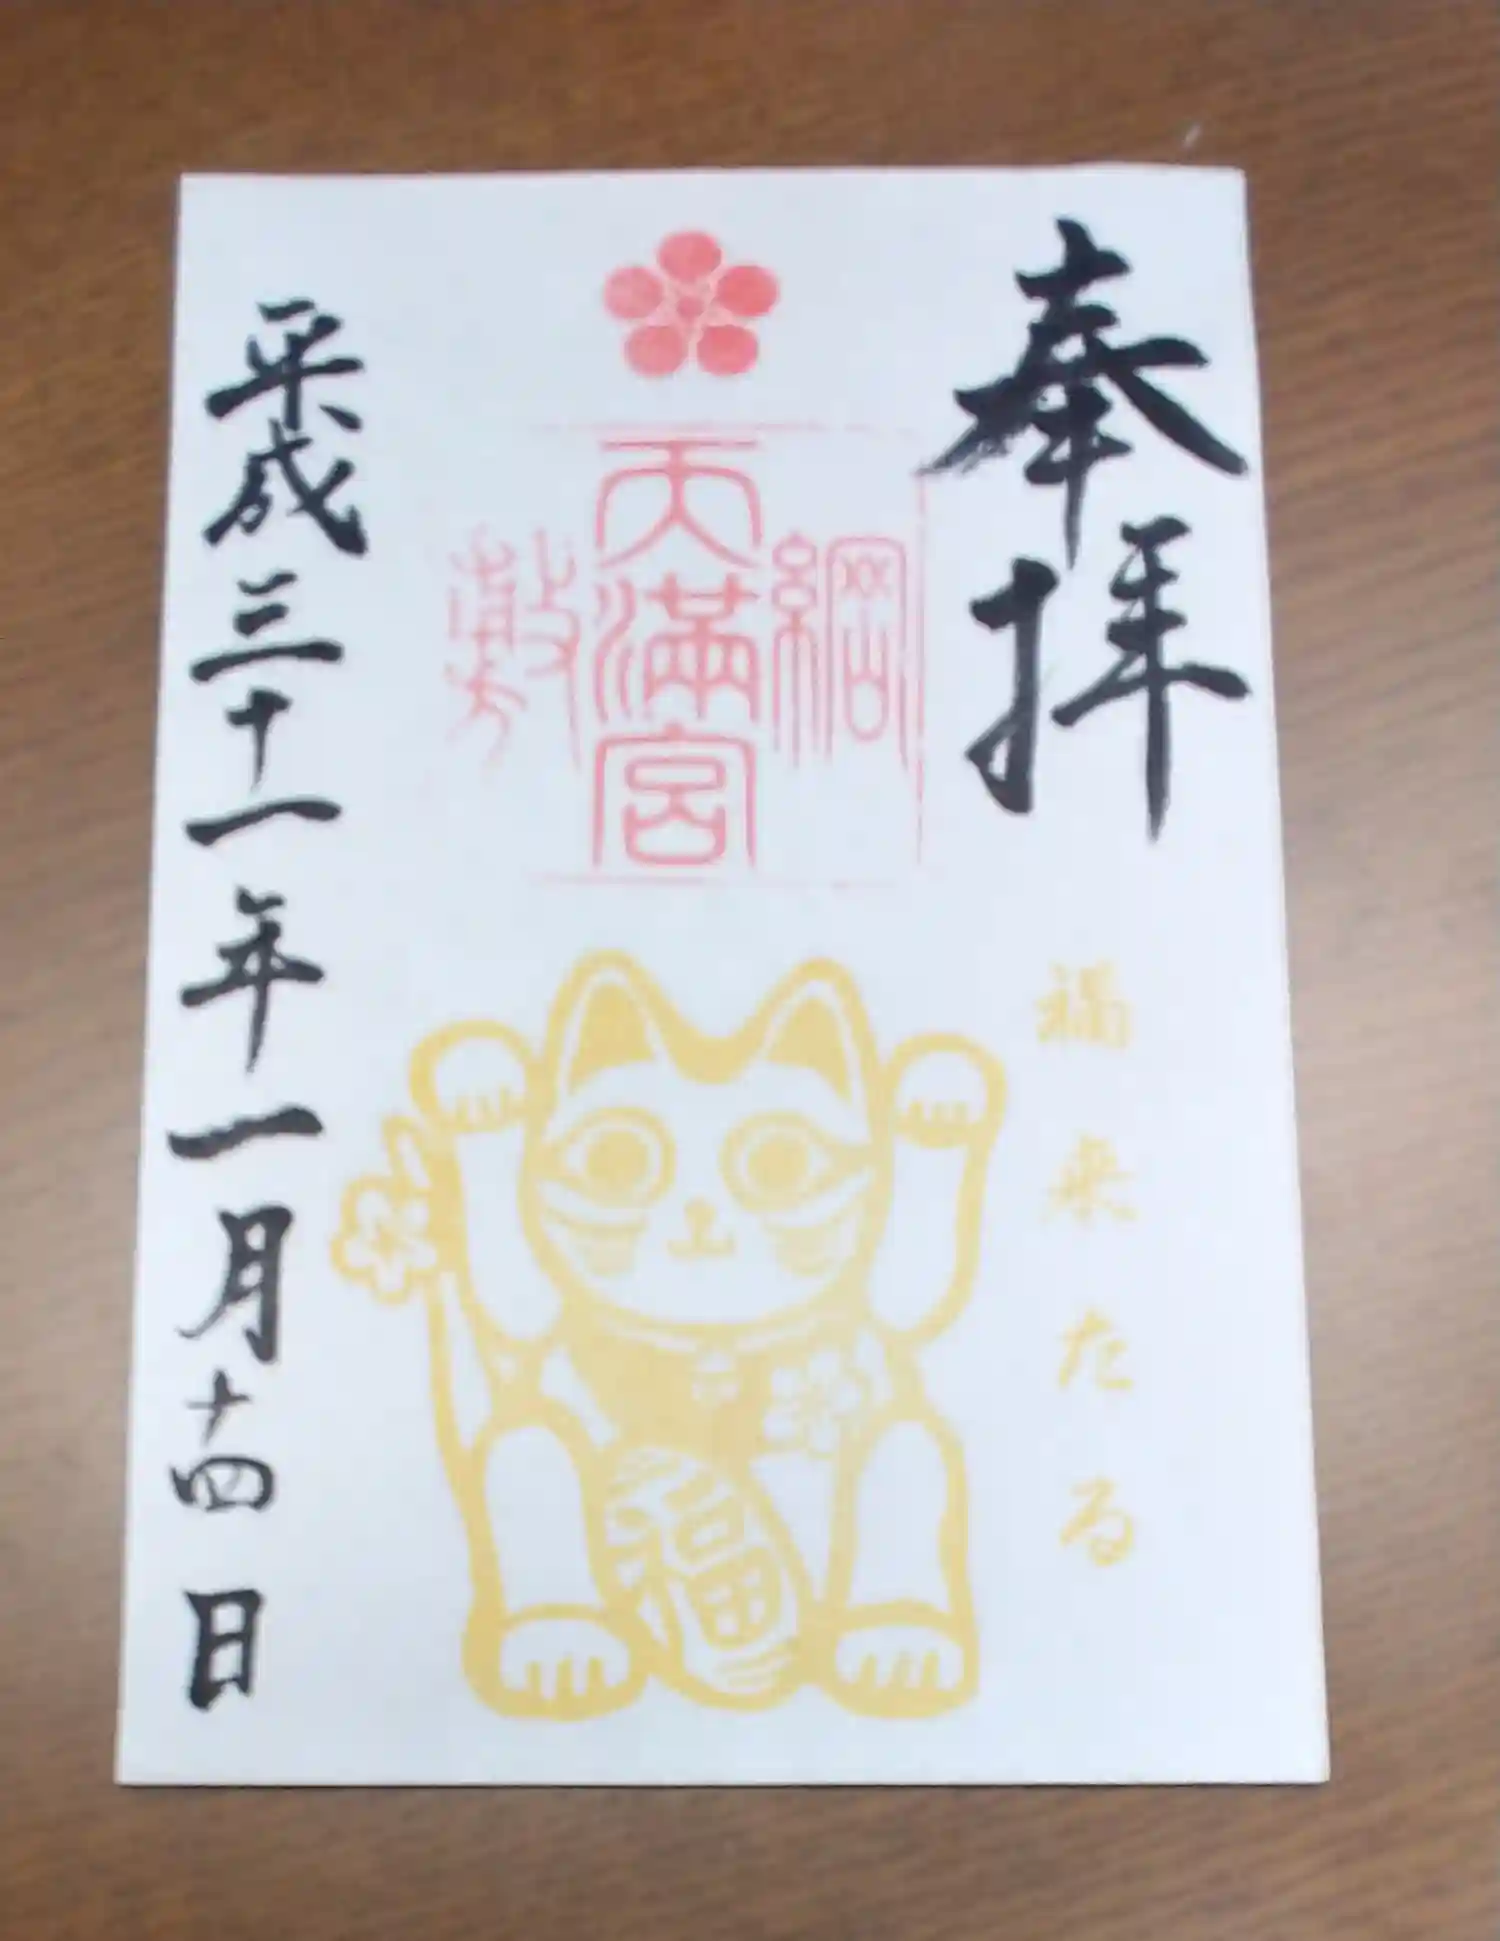 奉拝
綱
天満宮
敷
福来たる
福
平成三十一年一月十四日